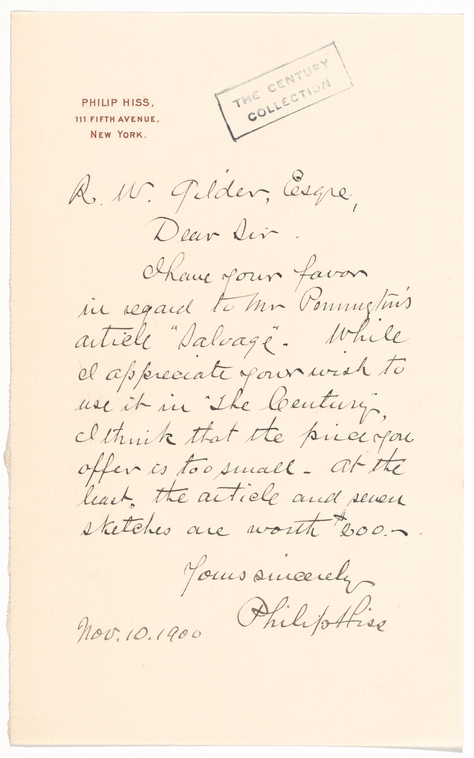 PHILIP HISS,
111 FIFTH AVENUE,
NEW YORK.
THE CENTURY
COLLECTION
R. W. Gilder, Esqre,
Dear Sir.
I have your favor
in regard to Mr Pennington's
article "Salvage". While
I appreciate your wish to
use it in "The Century",
I think that the price you
offer is too small - At the
least, the article and seven
sketches are worth $200.-
Yours sincerely
Philip Hiss
Nov. 10. 1900